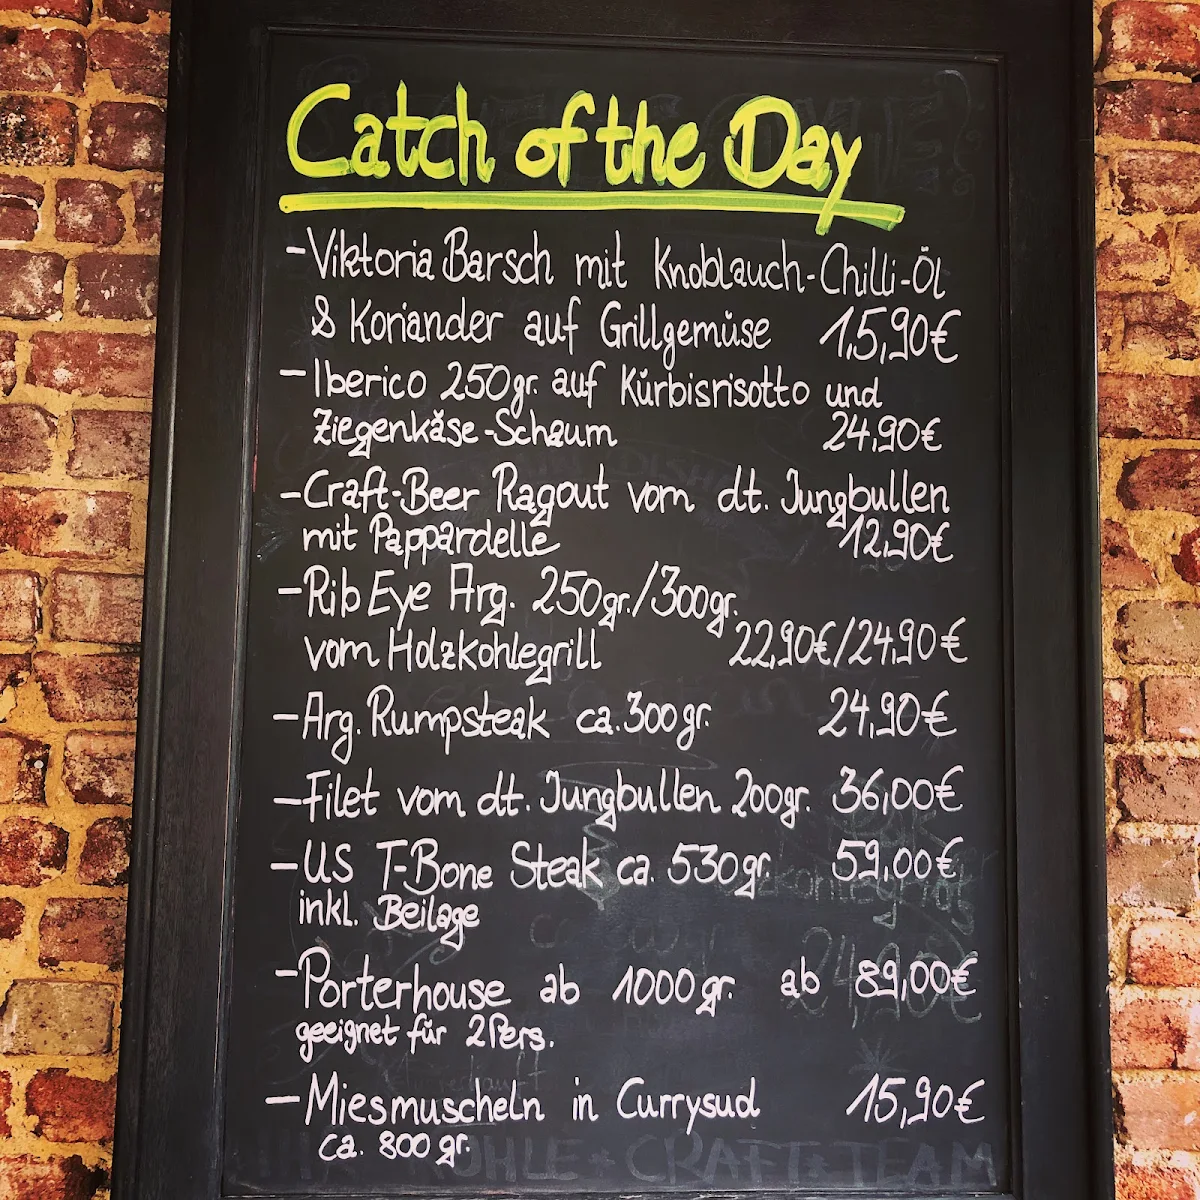 Catch of the Day
- Viktoria Barsch mit Knoblauch-Chilli-Öl
& Koriander auf Grillgemüse 15,90€
- Iberico 250gr. auf Kürbisrisotto und
Ziegenkäse-Schaum 24,90€
- Craft-Beer Ragout vom dt. Jungbullen
mit Pappardelle 12,90€
- Rib Eye Arg. 250gr./300gr.
vom Holzkohlegrill 22,90€/24,90€
- Arg. Rumpsteak ca. 300gr. 24,90€
- Filet vom dt. Jungbullen 200gr. 36,00€
- US T-Bone Steak ca. 530gr. 59,00€
inkl. Beilage
- Porterhouse ab 1000gr. ab 89,00€
geeignet für 2Pers.
- Miesmuscheln in Currysud 15,90€
ca. 800gr.
CRAFT TEAM